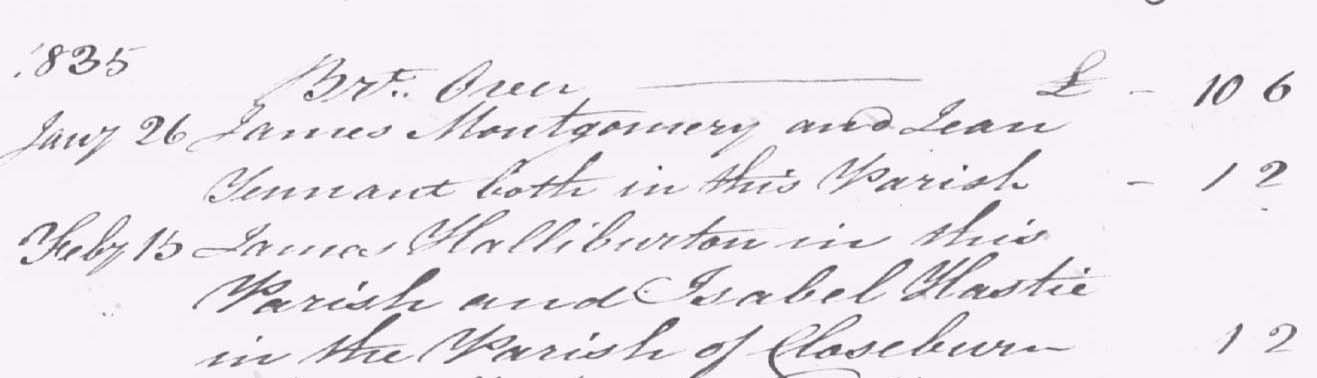 1835
Brt. Over £ - 10 6
Jany 26 James Montgomery and Jean
Tennant both in this Parish - 1 2
Feby 15 James Halliburton in this
Parish and Isabel Hastie
in the Parish of Closeburn 1 2